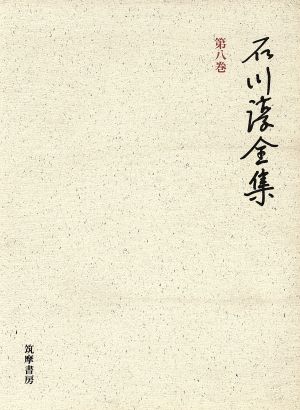 石川淳全集
第八巻
筑摩書房